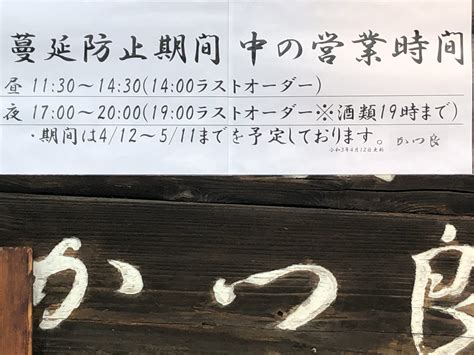 蔓延防止期間 中の営業時間
昼 11:30～14:30(14:00ラストオーダー)
夜 17:00～20:00(19:00ラストオーダー※酒類19時まで)
・期間は4/12～5/11までを予定しております。 かつ良
令和3年4月12日更新
かつ良